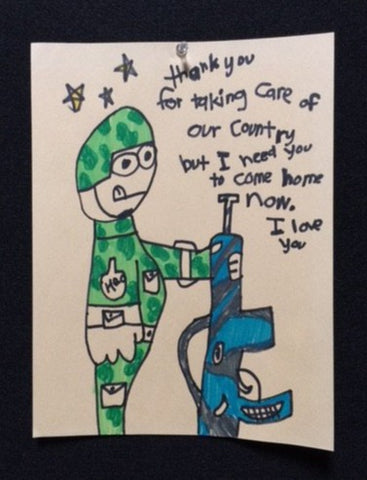 thank you
for taking care of
our country
but I need you
to come home
now.
I love
you